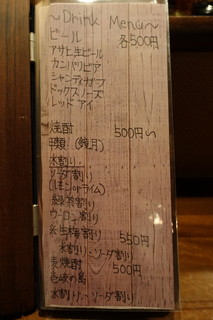 ～Drink Menu～
ビール 各500円
アサヒ生ビール
カンパリビア
シャンディガフ
ドッグズノーズ
レッドアイ
焼酎 500円～
甲類 (鏡月)
水割り
ソーダ割り
(レモンorライム)
緑茶割り
ウーロン割り
生梅割り 550円
水割り・ソーダ割り
麦焼酎 500円
壱岐の島
水割り・ソーダ割り